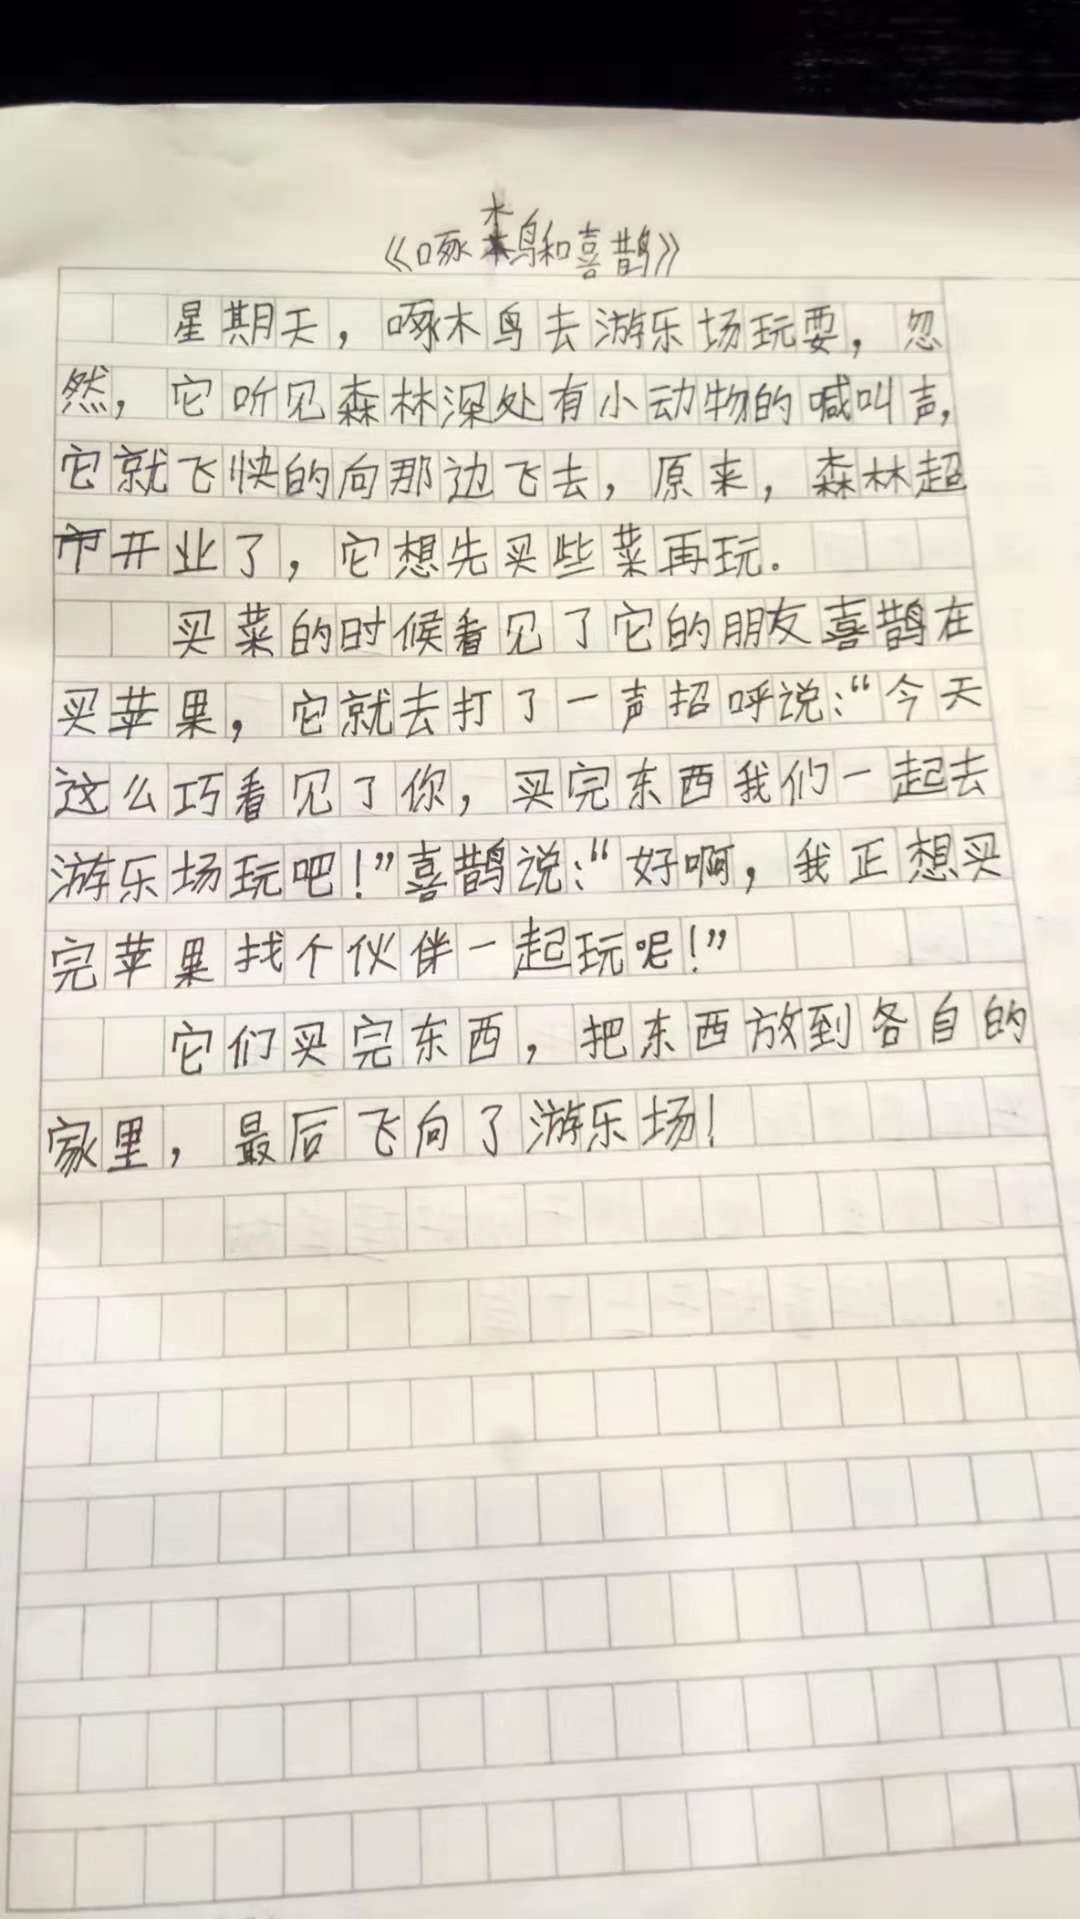 《啄木鸟和喜鹊》
星期天，啄木鸟去游乐场玩耍，忽
然，它听见森林深处有小动物的喊叫声，
它就飞快的向那边飞去，原来，森林超
市开业了，它想先买些菜再玩.
买菜的时候看见了它的朋友喜鹊在
买苹果，它就去打了一声招呼说：“今天
这么巧看见了你，买完东西我们一起去
游乐场玩吧！”喜鹊说：“好啊，我正想买
完苹果找个伙伴一起玩呢！”
它们买完东西，把东西放到各自的
家里，最后飞向了游乐场！